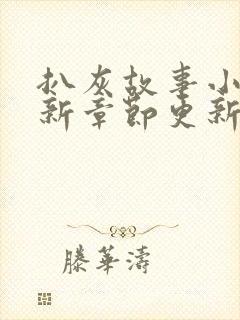 扒灰故事小
新章節更新
滕華濤